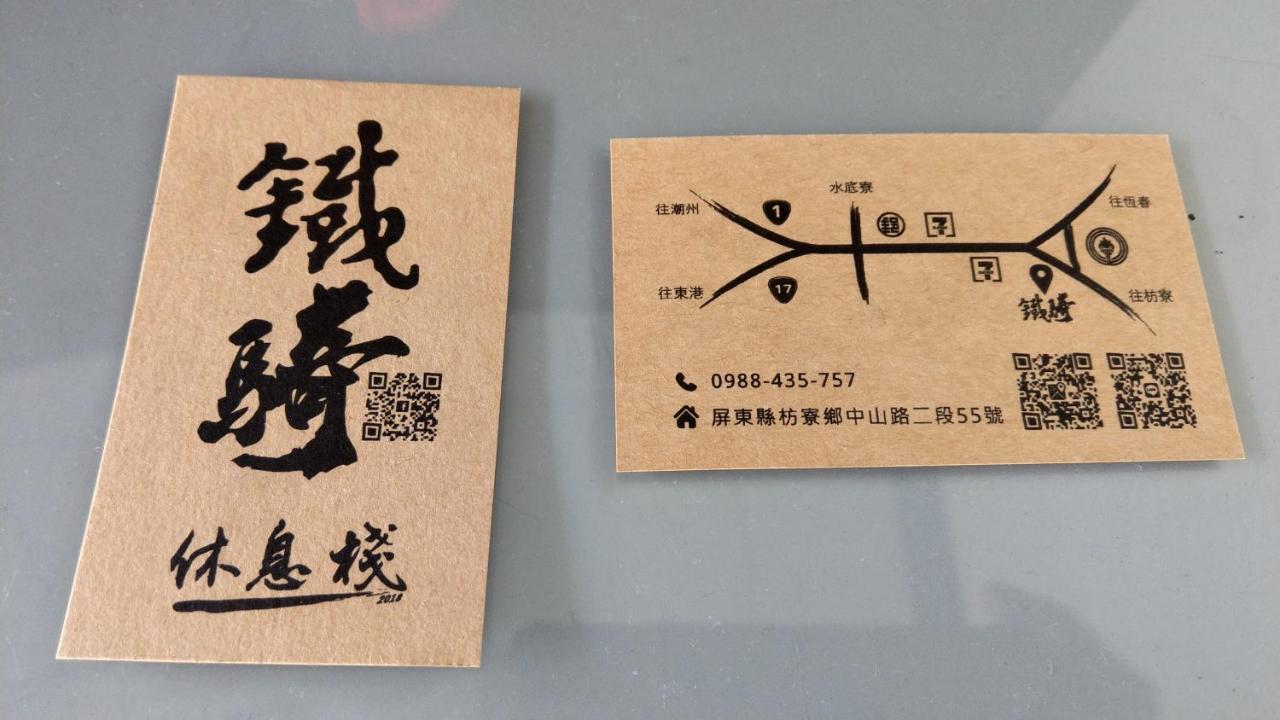 鐵
騎
休息棧
2018
水底寮
往潮州
1
郵
7
往恆春
往東港
17
7
鐵騎
往枋寮
0988-435-757
屏東縣枋寮鄉中山路二段55號